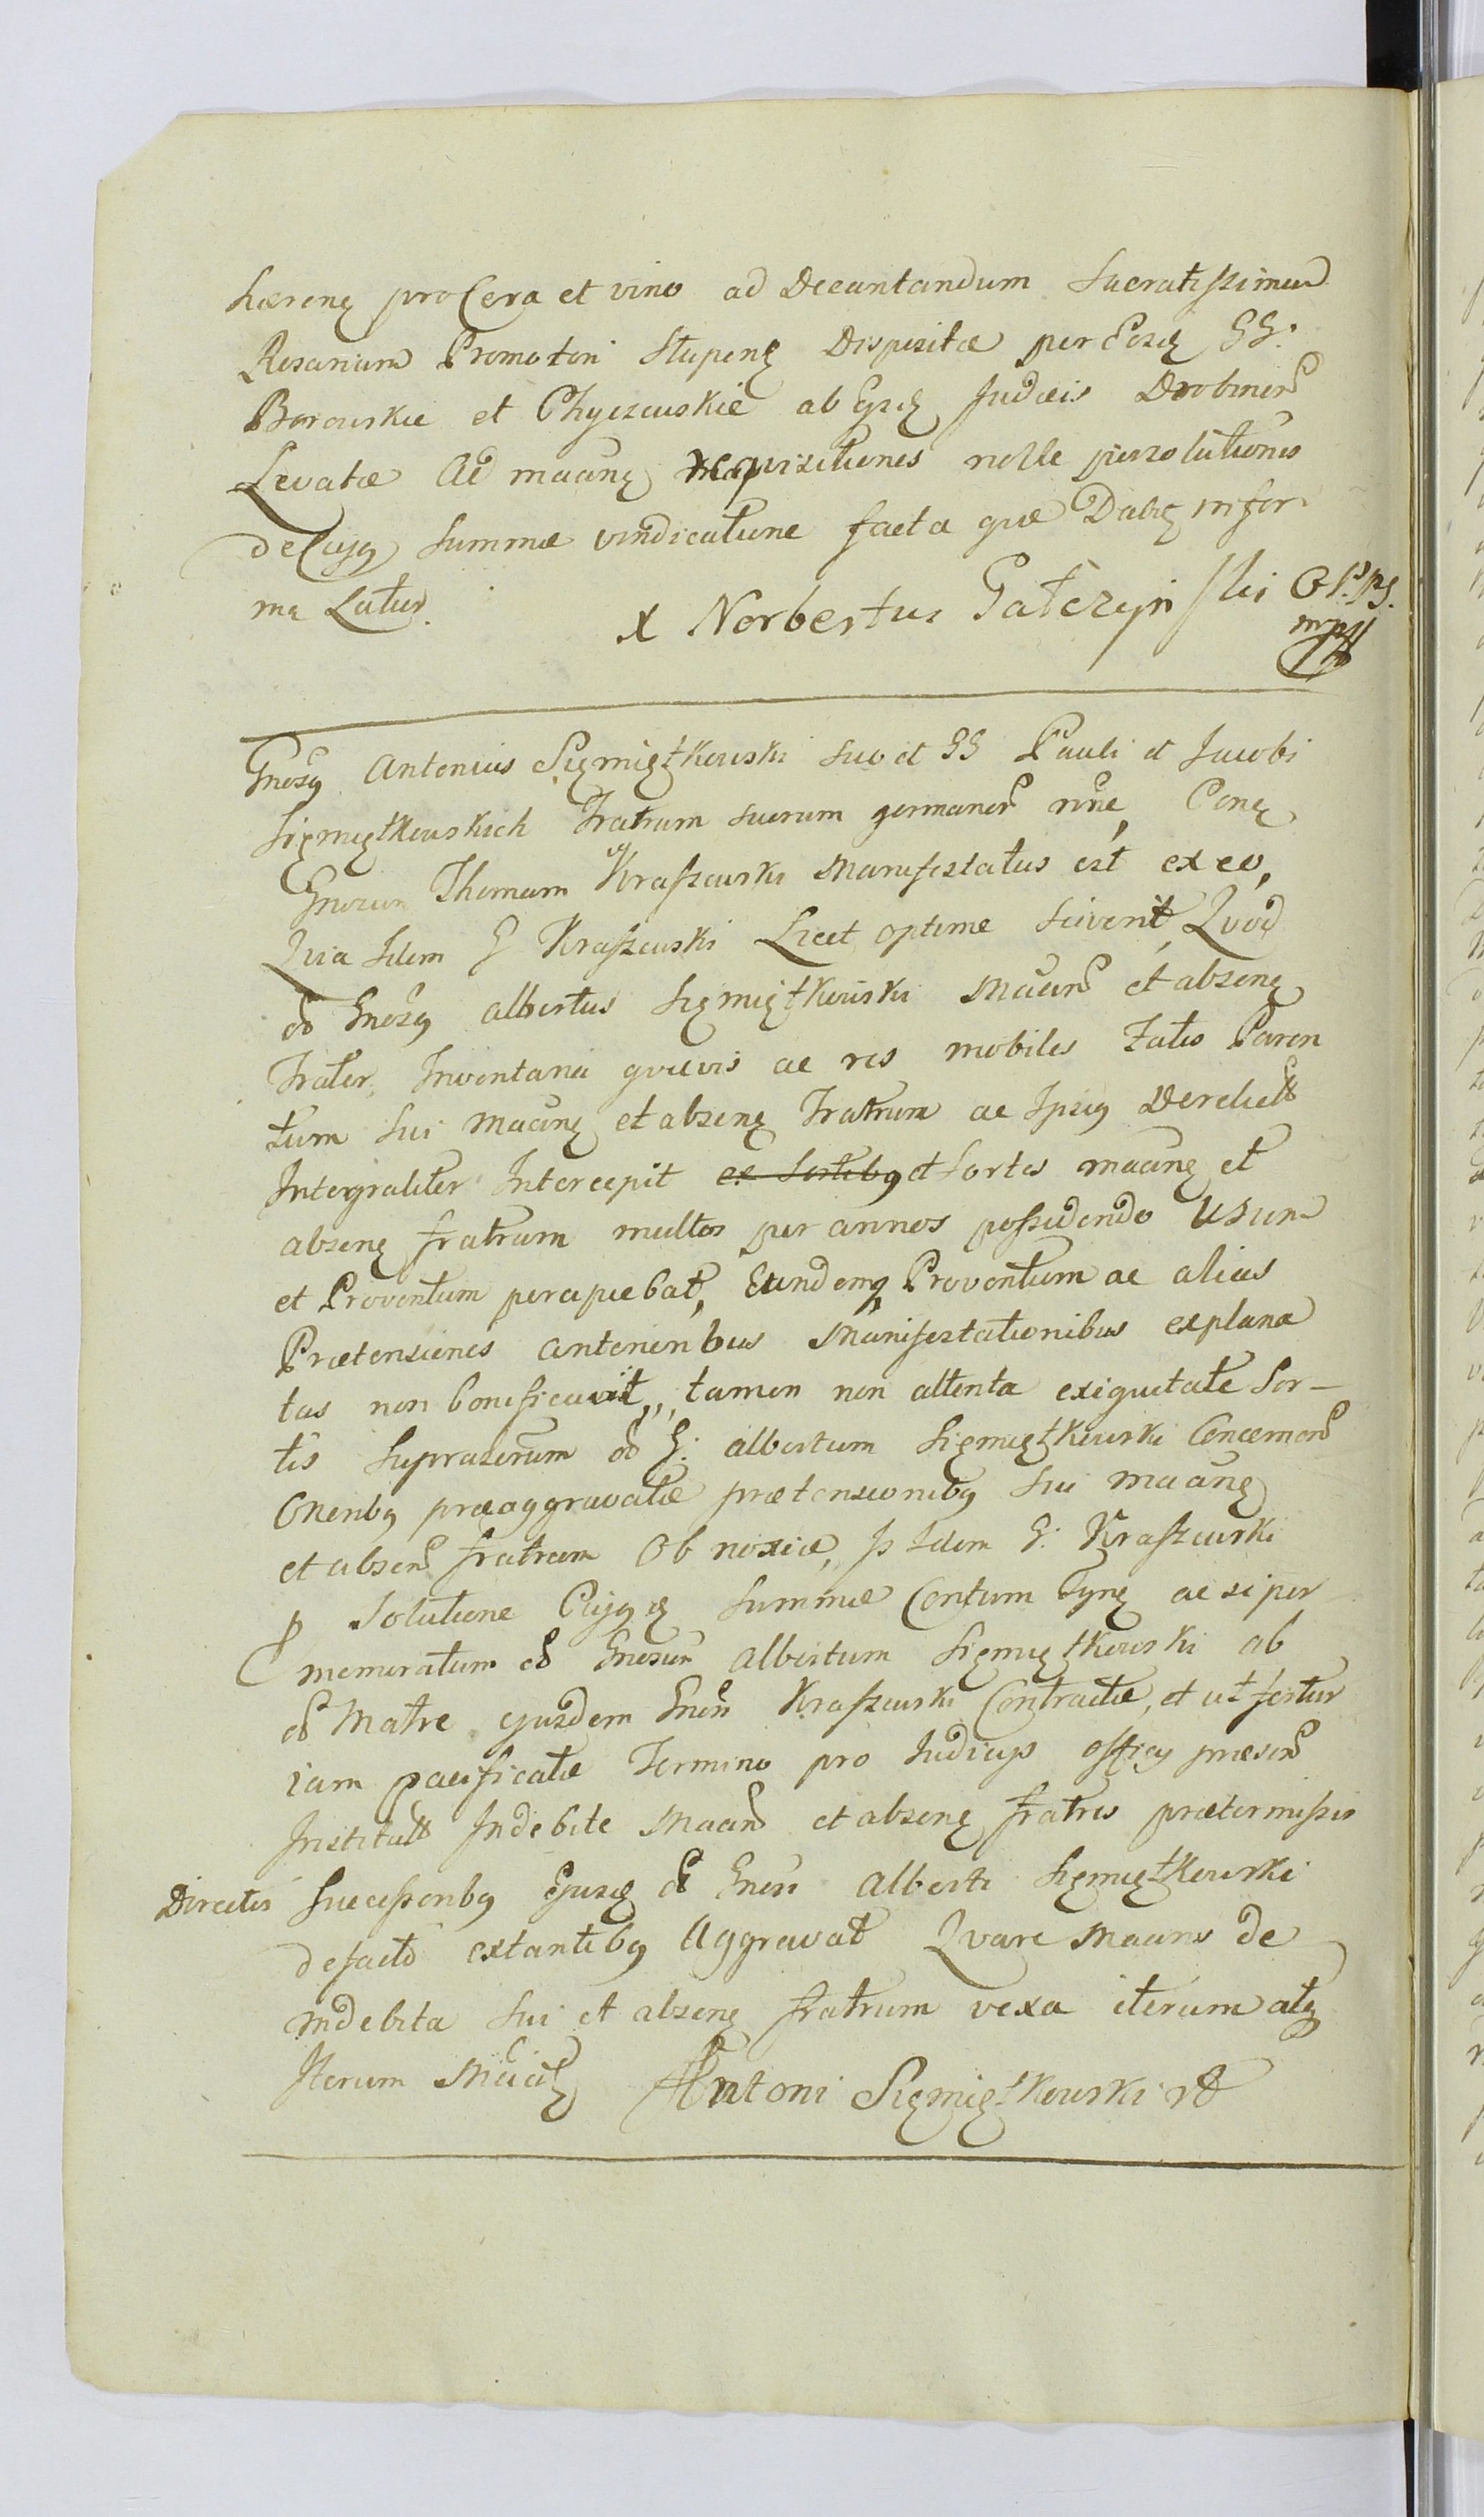 hæreng pro Cera et vino ad Decantandum Sacratissimum
Rosarium Promotori Stupeng Dispositæ per Eosq GG:
Borowskie et Chyczewskie ab Eysq Judæis Drobinen
Levatæ Ad maang requisitiones nolle persolutiones
de Cujq Summæ vindicatione facta quæ Dabiq infor
ma Latur.
X Norbertus Gałczyński O. S. P. PS.
mpp
Gnosq Antonius Siemiętkowski suo et GG Pauli et Jacobi
Siemiętkowskich Fratrum suorum germanor nne, Conq
Gnosum Thomam Kraszewski Manifestatus est ex eo,
Qvia Idem G Kraszewski Licet optime sciverit, Qvod
od Gnosq Albertus Siemiętkowski Maan et absenq
Frater, Inventaria qvævis ac res mobiles Fatis Paren
tum sui Maang et absenq Fratrum ac Ipsiq Derelict
Integraliter Intercepit ex Sortibq et Sortes maang et
absenq fratrum multos per annos possidendo Usum
et Proventum percipiebat, Eundemq Proventum ac alias
Prætensiones anterioribus Manifestationibus explana
tas non bonificavit, tamen non attenta exiguitate Sor-
tis Suprascrum od G: Albertum Siemiętkowski Concernen
Oneribq præaggravatæ prætensionibq sui maang
et absen fratrum Obnoxiæ, Idem G: Kraszewski
p Solutione Cujqq Summæ Centum Tynq ac si per
memoratum od Gnosum Albertum Siemiętkowski ab
od Matre ejusdem Gnosi Kraszewski Contractæ, et ut fertur
iam pacificatæ Termino pro Judicijs officij præsen
Institutt Indebite Maan et absenq fratris prætermissis
Directis Successoribq Ejusq od Gnosi Alberti Siemiętkowski
defacto extantibq Aggravat Qvare Maans de
indebita sui et absenq fratrum vexa iterum atq
Iterum Maatq Antoni Siemiętkowski